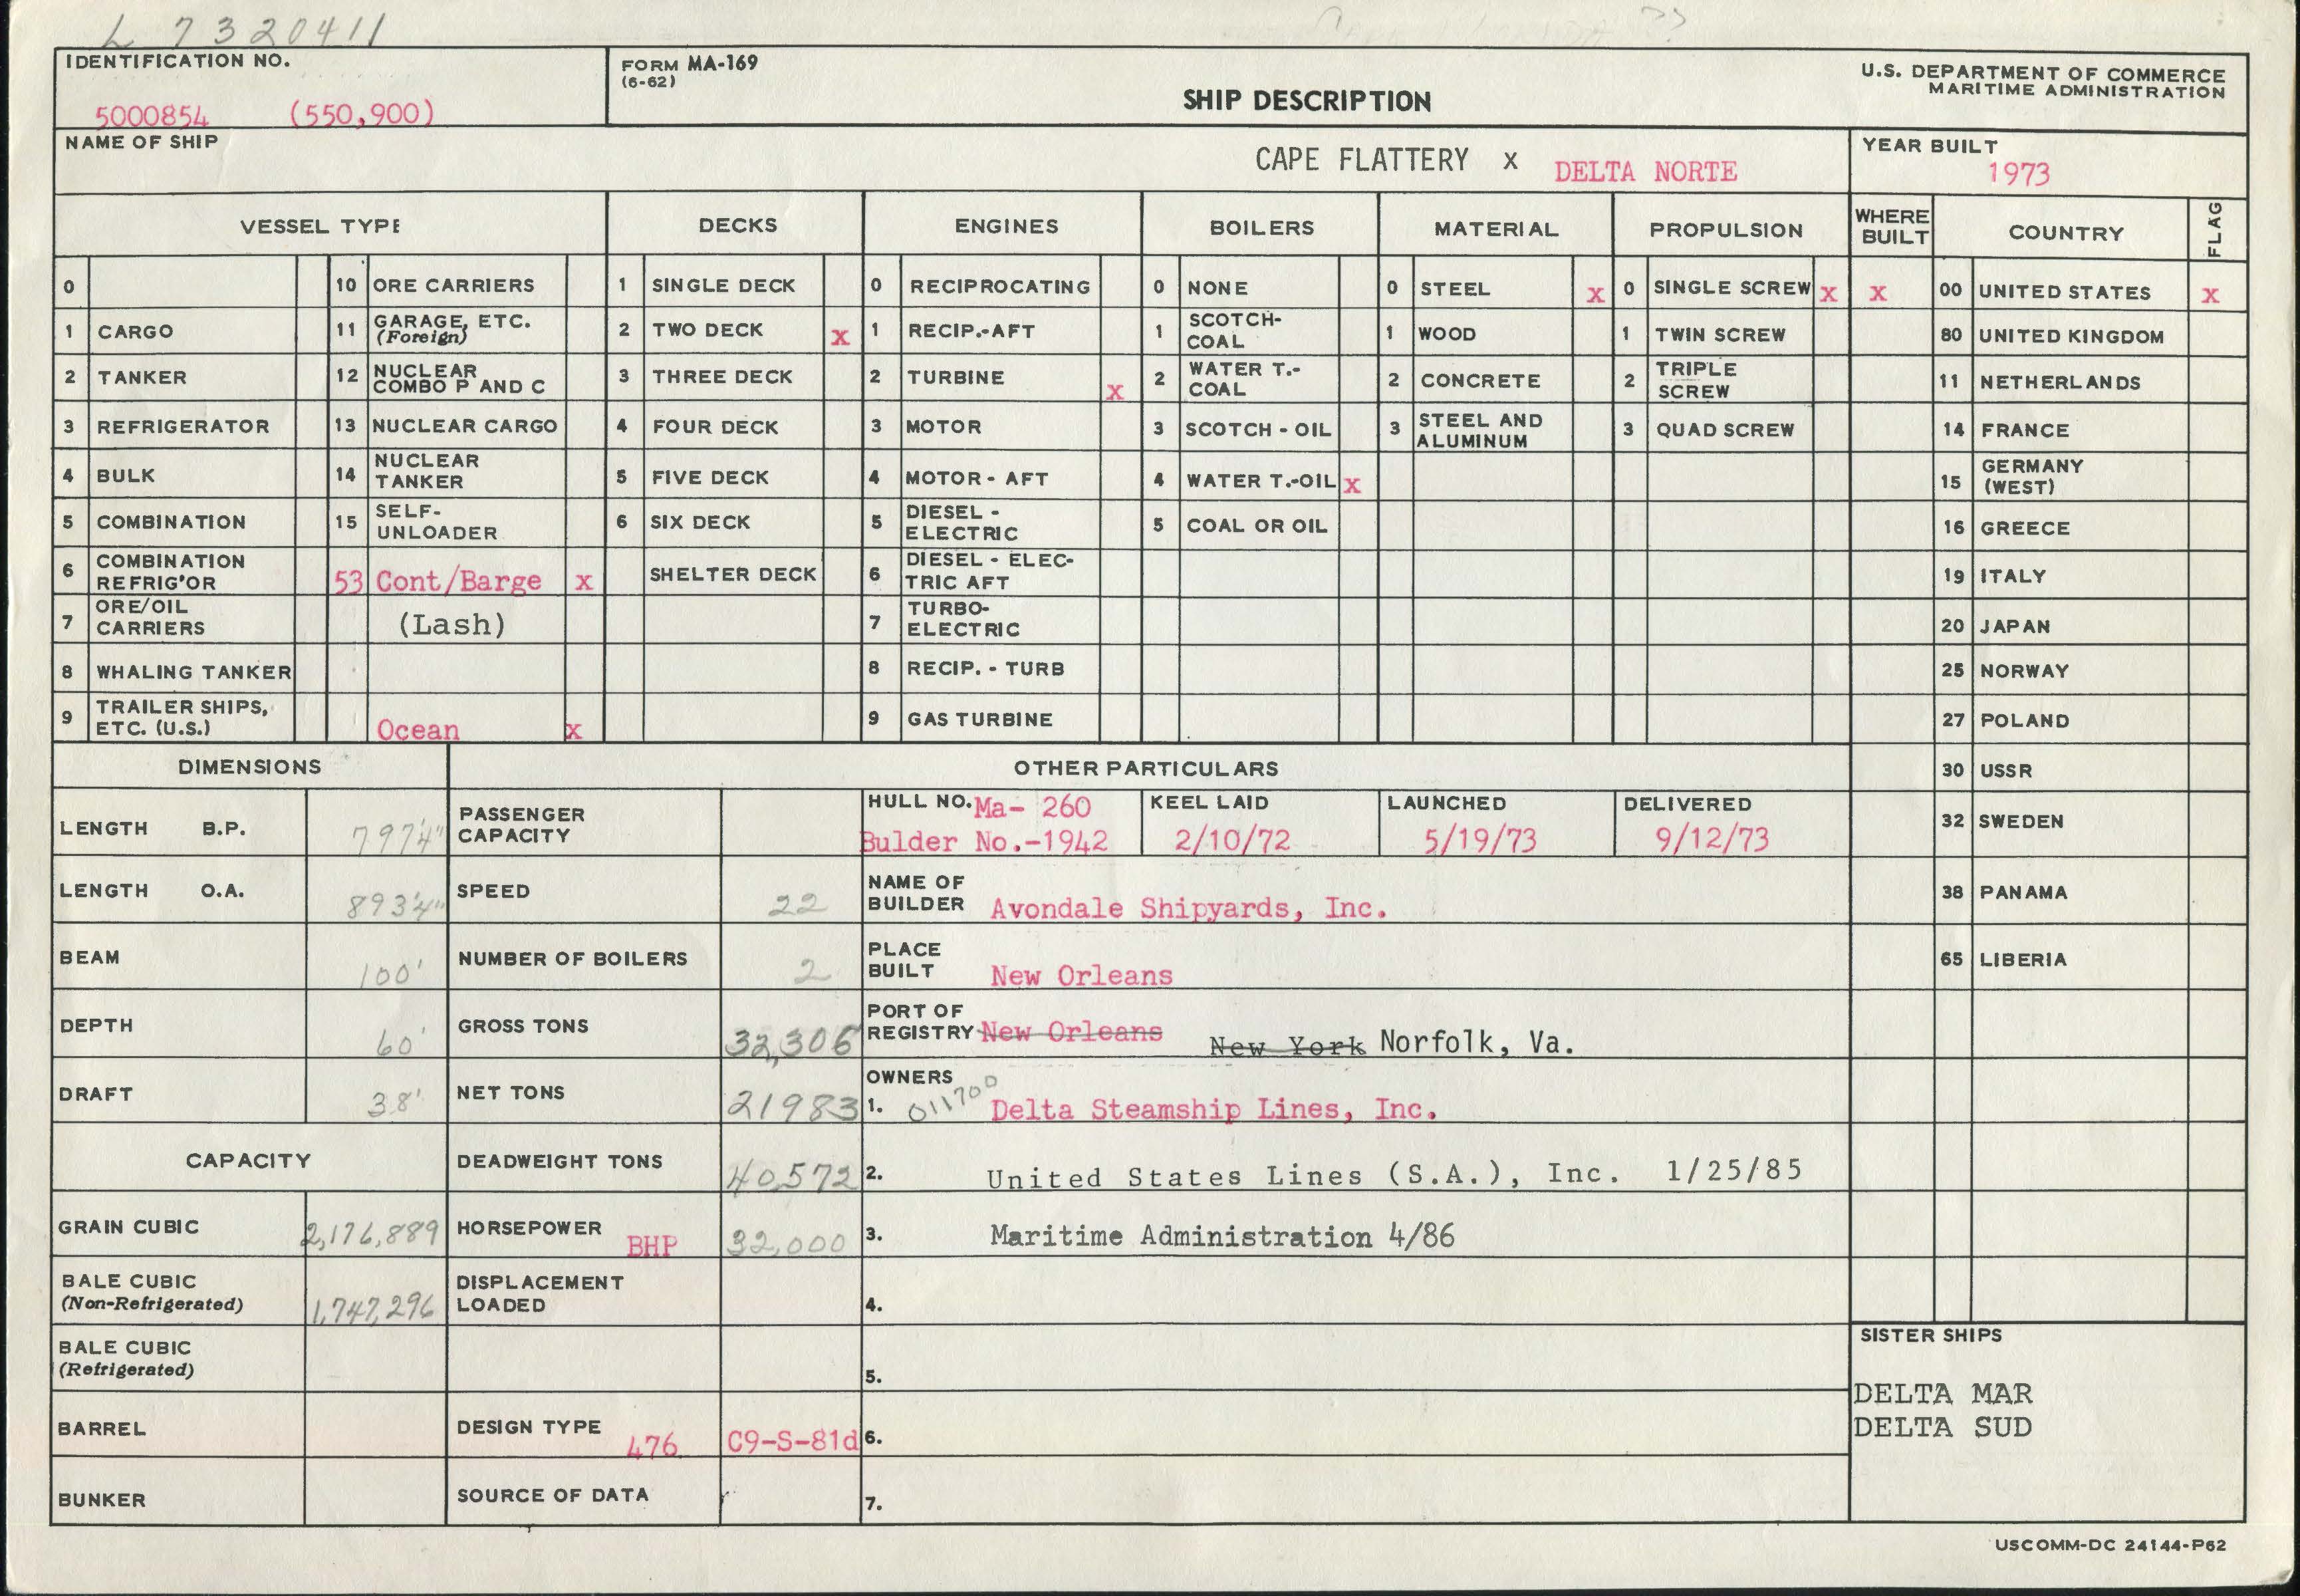 L 7320411
IDENTIFICATION NO.
5000854 (550,900)
FORM MA-169
(6-62)
SHIP DESCRIPTION
U.S. DEPARTMENT OF COMMERCE
MARITIME ADMINISTRATION
NAME OF SHIP
CAPE FLATTERY x DELTA NORTE
YEAR BUILT
1973
VESSEL TYPE
DECKS
ENGINES
BOILERS
MATERIAL
PROPULSION
WHERE
BUILT
COUNTRY
FLAG
0
1 CARGO
2 TANKER
3 REFRIGERATOR
4 BULK
5 COMBINATION
6 COMBINATION
REFRIG'OR
7 ORE/OIL
CARRIERS
8 WHALING TANKER
9 TRAILER SHIPS,
ETC. (U.S.)
10 ORE CARRIERS
11 GARAGE, ETC.
(Foreign)
12 NUCLEAR
COMBO P AND C
13 NUCLEAR CARGO
14 NUCLEAR
TANKER
15 SELF-
UNLOADER
53 Cont/Barge x
(Lash)
Ocean x
1 SINGLE DECK
2 TWO DECK x
3 THREE DECK
4 FOUR DECK
5 FIVE DECK
6 SIX DECK
SHELTER DECK
0 RECIPROCATING
1 RECIP.-AFT
2 TURBINE x
3 MOTOR
4 MOTOR - AFT
5 DIESEL -
ELECTRIC
6 DIESEL - ELEC-
TRIC AFT
7 TURBO-
ELECTRIC
8 RECIP. - TURB
9 GAS TURBINE
0 NONE
1 SCOTCH-
COAL
2 WATER T.-
COAL
3 SCOTCH - OIL
4 WATER T.-OIL x
5 COAL OR OIL
0 STEEL x
1 WOOD
2 CONCRETE
3 STEEL AND
ALUMINUM
0 SINGLE SCREW x
1 TWIN SCREW
2 TRIPLE
SCREW
3 QUAD SCREW
x 00 UNITED STATES x
80 UNITED KINGDOM
11 NETHERLANDS
14 FRANCE
15 GERMANY
(WEST)
16 GREECE
19 ITALY
20 JAPAN
25 NORWAY
27 POLAND
30 USSR
32 SWEDEN
38 PANAMA
65 LIBERIA
DIMENSIONS
LENGTH B.P. 797'4"
LENGTH O.A. 893'4"
BEAM 100'
DEPTH 60'
DRAFT 38'
CAPACITY
GRAIN CUBIC 2,176,889
BALE CUBIC
(Non-Refrigerated) 1,747,296
BALE CUBIC
(Refrigerated)
BARREL
BUNKER
OTHER PARTICULARS
PASSENGER
CAPACITY
SPEED 22
NUMBER OF BOILERS 2
GROSS TONS 32,306
NET TONS 21983
DEADWEIGHT TONS 40,572
HORSEPOWER BHP 32,000
DISPLACEMENT
LOADED
DESIGN TYPE 476 C9-S-81d
SOURCE OF DATA
HULL NO. Ma- 260
Bulder No.-1942
KEEL LAID
2/10/72
LAUNCHED
5/19/73
DELIVERED
9/12/73
NAME OF
BUILDER Avondale Shipyards, Inc.
PLACE
BUILT New Orleans
PORT OF
REGISTRY New Orleans New York Norfolk, Va.
OWNERS
1. 011700 Delta Steamship Lines, Inc.
2. United States Lines (S.A.), Inc. 1/25/85
3. Maritime Administration 4/86
4.
5.
6.
7.
SISTER SHIPS
DELTA MAR
DELTA SUD
USCOMM-DC 24144-P62